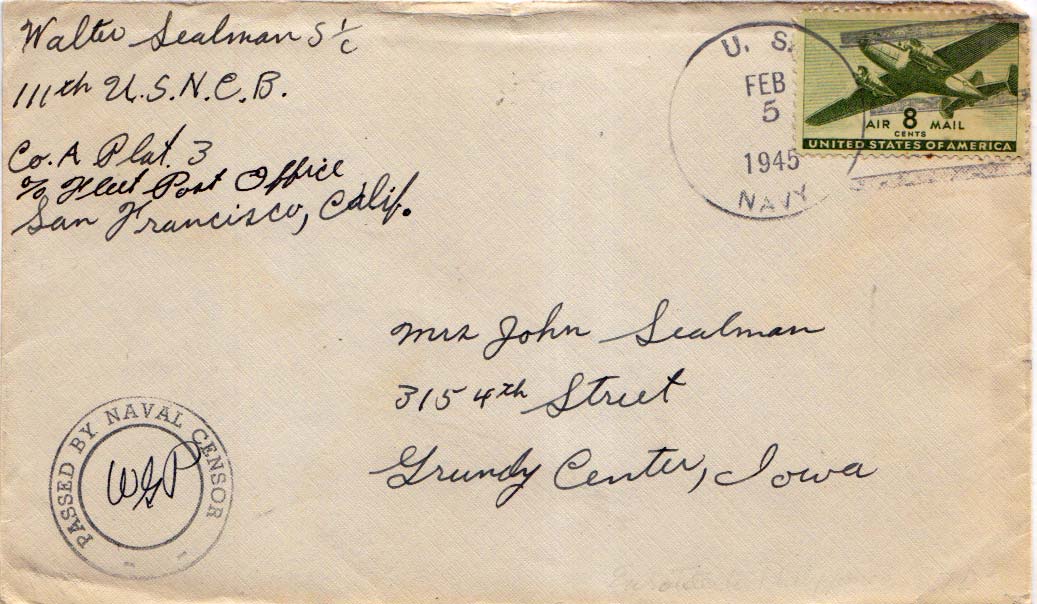 Walter Sealman S 1/c
111th U.S.N.C.B.
Co. A Plat. 3
c/o Fleet Post Office
San Francisco, Calif.
U. S.
FEB
5
1945
NAVY
AIR 8 MAIL
CENTS
UNITED STATES OF AMERICA
Mrs John Sealman
315 4th Street
Grundy Center, Iowa
PASSED BY NAVAL CENSOR
WGP